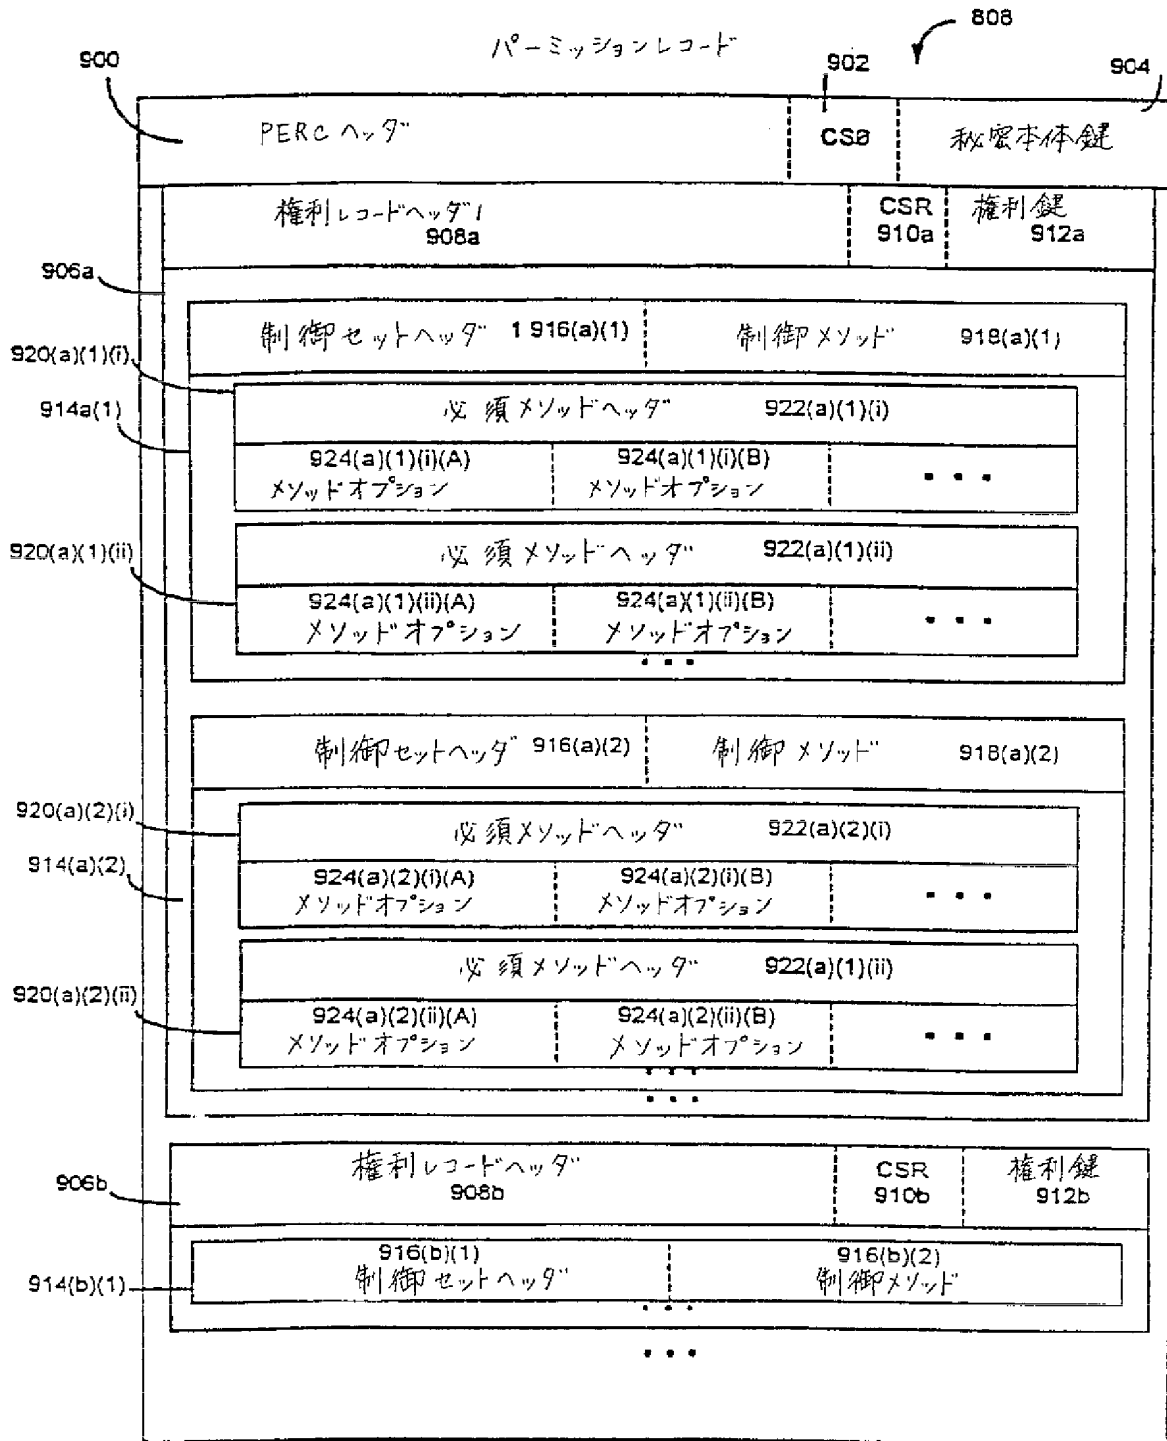 808
パーミッションレコード
900
902
904
PERCヘッダ
CS0
秘密本体鍵
権利レコードヘッダ1
908a
CSR
910a
権利鍵
912a
906a
制御セットヘッダ 1 916(a)(1)
制御メソッド 918(a)(1)
920(a)(1)(i)
914a(1)
必須メソッドヘッダ 922(a)(1)(i)
924(a)(1)(i)(A)
メソッドオプション
924(a)(1)(i)(B)
メソッドオプション
• • •
920(a)(1)(ii)
必須メソッドヘッダ 922(a)(1)(ii)
924(a)(1)(ii)(A)
メソッドオプション
924(a)(1)(ii)(B)
メソッドオプション
• • •
• • •
制御セットヘッダ 916(a)(2)
制御メソッド 918(a)(2)
920(a)(2)(i)
914(a)(2)
必須メソッドヘッダ 922(a)(2)(i)
924(a)(2)(i)(A)
メソッドオプション
924(a)(2)(i)(B)
メソッドオプション
• • •
920(a)(2)(ii)
必須メソッドヘッダ 922(a)(1)(ii)
924(a)(2)(ii)(A)
メソッドオプション
924(a)(2)(ii)(B)
メソッドオプション
• • •
• • •
• • •
906b
権利レコードヘッダ
908b
CSR
910b
権利鍵
912b
914(b)(1)
916(b)(1)
制御セットヘッダ
916(b)(2)
制御メソッド
• • •
• • •